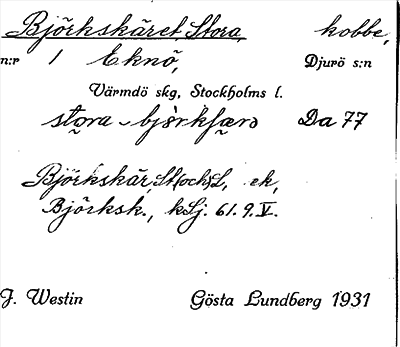 Björkskäret, Stora, kobbe,
n:r 1 Eknö, Djurö s:n
Värmdö skg, Stockholms l.
stora - Da 77
Björkskär, St(och)L, ek,
Björksk., kSj. 61. 9. V.
J. Westin Gösta Lundberg 1931